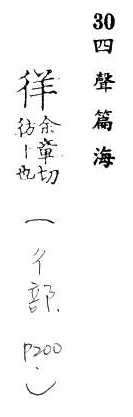 30四聲篇海
徉
余章切
彷丨也
（彳部. P200.）